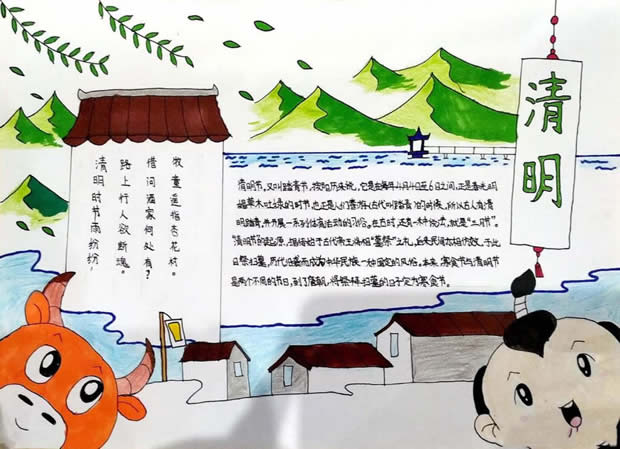 清明
清明时节雨纷纷,
路上行人欲断魂。
借问酒家何处有?
牧童遥指杏花村。
清明节,又叫踏青节,按阳历来说,它是在每年4月4日至6日之间,正是春光明
媚草木吐绿的时节,也正是人们春游(古代叫踏青)的时候,所以古人有清
明踏青,并开展一系列体育活动的习俗。在古时,还有一种说法,就是“三月节”。
“清明节的起源,据传始于古代帝王将相“墓祭”之礼,后来民间亦相仿效,于此
日祭祖扫墓,历代沿袭而成为中华民族一种固定的风俗。本来,寒食节与清明节
是两个不同的节日,到了唐朝,将祭拜扫墓的日子定为寒食节。